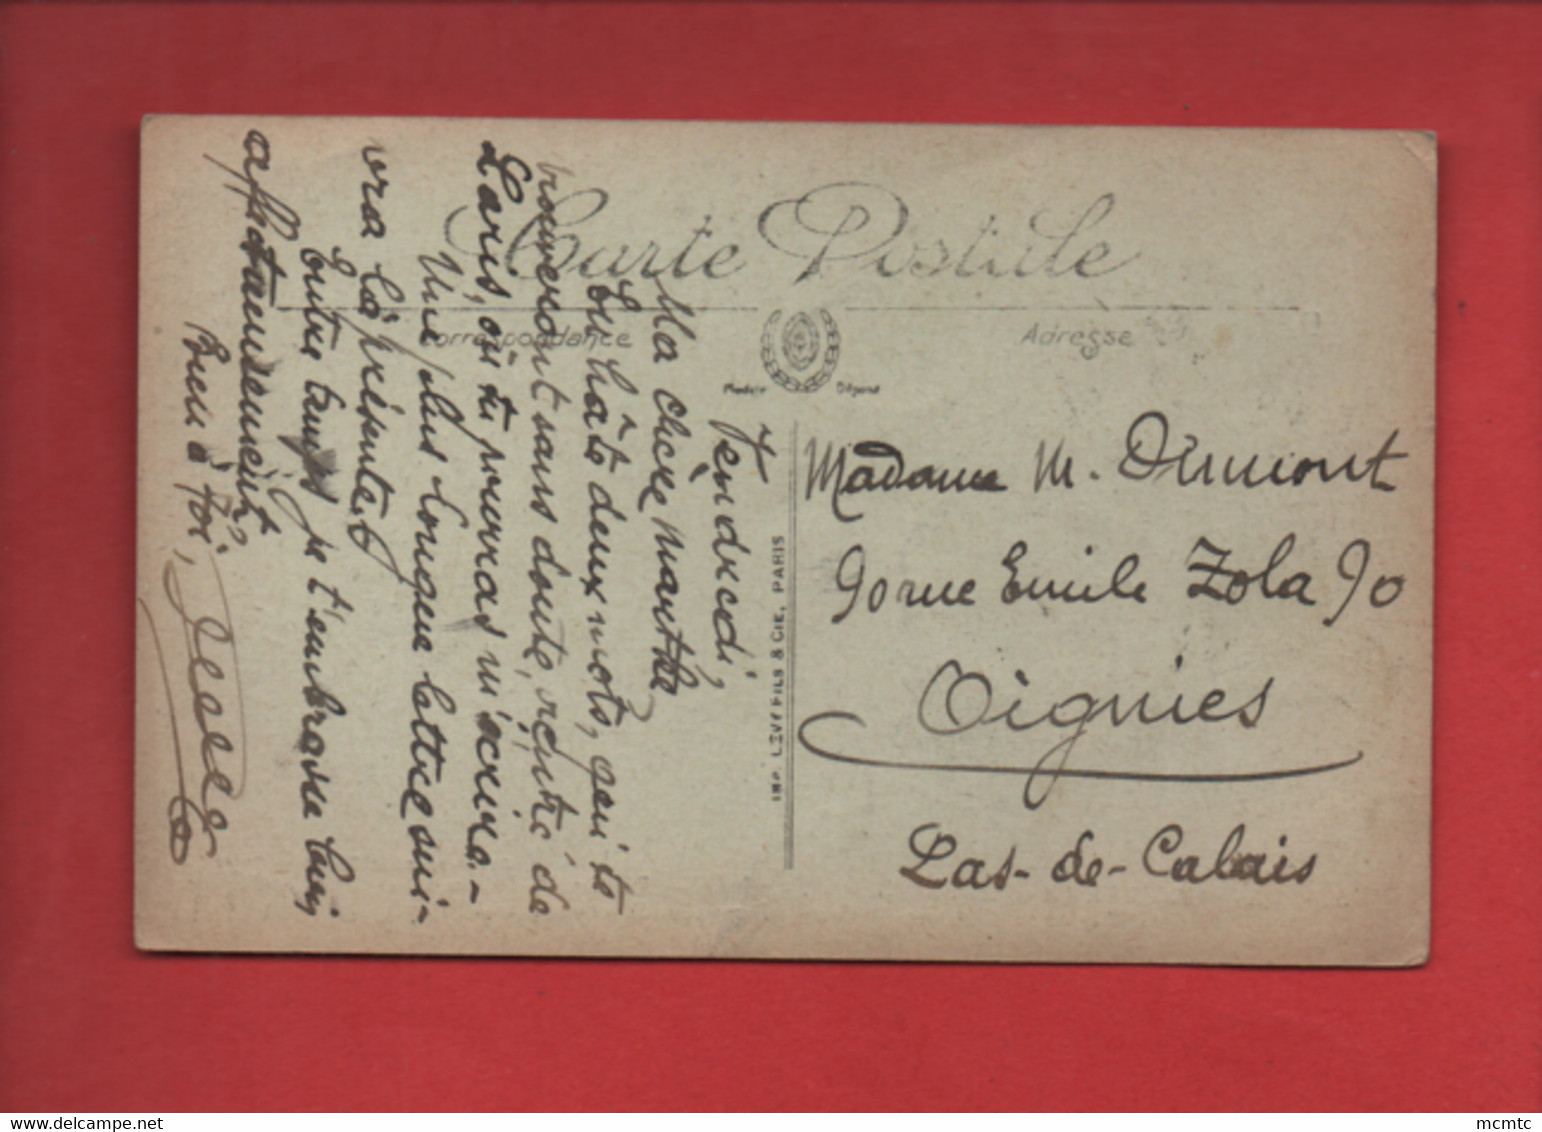 Carte Postale
Correspondance
Adresse
Modèle Déposé
IMP. LÉVY FILS & CIE, PARIS
Vendredi,
Ma chère Marthe
En hâte deux mots, qui te
trouveront sans doute, rentré de
Paris, où tu pourras m'écrire.-
Une plus longue lettre sui-
vra la présente.
Entre temps je t'embrasse bien
affectueusement,
Bien à toi,
Madame M. Dumont
90 rue Emile Zola 90
Oignies
Pas-de-Calais
mcmtc